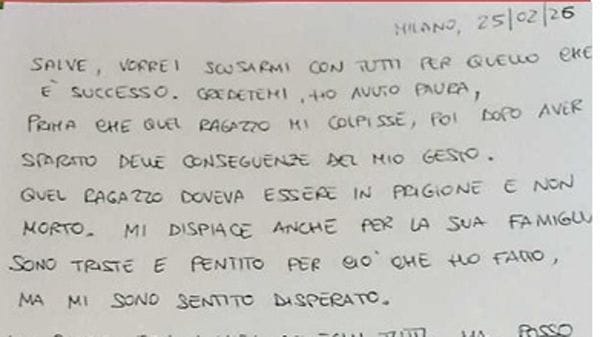 MILANO, 25/02/26
SALVE, VORREI SCUSARMI CON TUTTI PER QUELLO CHE
E' SUCCESSO. CREDETEMI, HO AVUTO PAURA,
PRIMA CHE QUEL RAGAZZO MI COLPISSE, POI DOPO AVER
SPARATO DELLE CONSEGUENZE DEL MIO GESTO.
QUEL RAGAZZO DOVEVA ESSERE IN PRIGIONE E NON
MORTO. MI DISPIACE ANCHE PER LA SUA FAMIGLI
SONO TRISTE E PENTITO PER CIO' CHE HO FATTO,
MA MI SONO SENTITO DISPERATO.
TUTTI MA POSSO